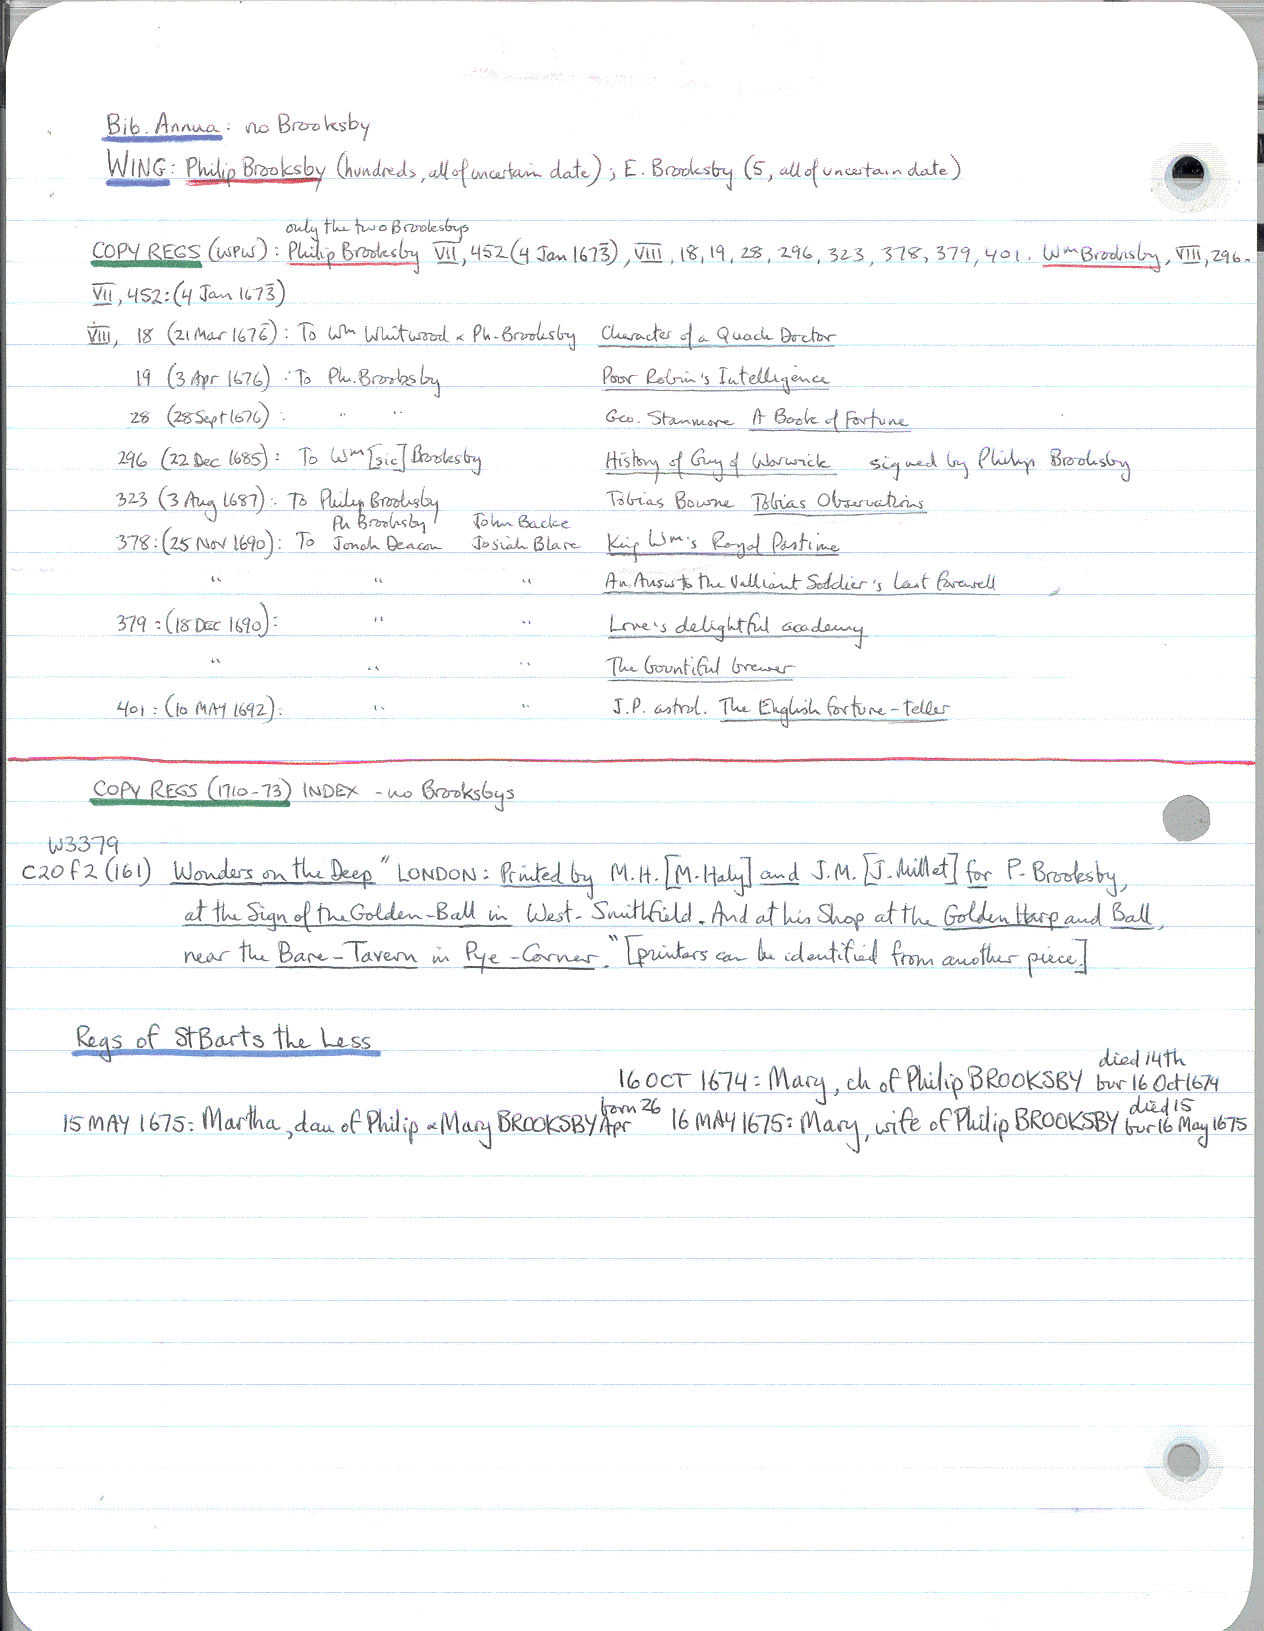 Bib. Annua: no Brooksby
WING: Philip Brooksby (hundreds, all of uncertain date); E. Brooksby (5, all of uncertain date)
only the two Brooksbys
COPY REGS (WPW): Philip Brooksby VII, 452 (4 Jan 1673), VIII, 18, 19, 28, 296, 323, 378, 379, 401. Wm Brooksby, VIII, 296.
VII, 452: (4 Jan 1673)
VIII, 18 (21 Mar 1676): To Wm Whitwood & Ph. Brooksby Character of a Quack Doctor
19 (3 Apr 1676): To Ph. Brooksby Poor Robin's Intelligence
28 (28 Sept 1676): " " Geo. Stanmore A Book of Fortune
296 (22 Dec 1685): To Wm [sic] Brooksby History of Guy of Warwick signed by Philip Brooksby
323 (3 Aug 1687): To Philip Brooksby Tobias Bowne Tobias Observations
Ph Brooksby John Backe
378: (25 Nov 1690): To Jonah Deacon Josiah Blare King Wm's Royal Pastime
" " " An Answ to the Valliant Soldier's last farewell
379: (18 DEC 1690): " " Love's delightful academy
" " " The bountiful brewer
401: (10 MAY 1692): " " J.P. astrol. The English fortune-teller
COPY REGS (1710-73) INDEX - no Brooksbys
W3379
C20f2 (161) Wonders on the Deep" LONDON: Printed by M.H. [M. Haly] and J.M. [J. Millet] for P. Brooksby,
at the Sign of the Golden-Ball in West-Smithfield. And at his Shop at the Golden Harp and Ball,
near the Bare-Tavern in Pye-Corner." [printers can be identified from another piece.]
Regs of St Barts the Less
died 14th
16 OCT 1674: Mary, ch of Philip BROOKSBY bur 16 Oct 1674
born 26 died 15
15 MAY 1675: Martha, dau of Philip & Mary BROOKSBY Apr 16 MAY 1675: Mary, wife of Philip BROOKSBY bur 16 May 1675